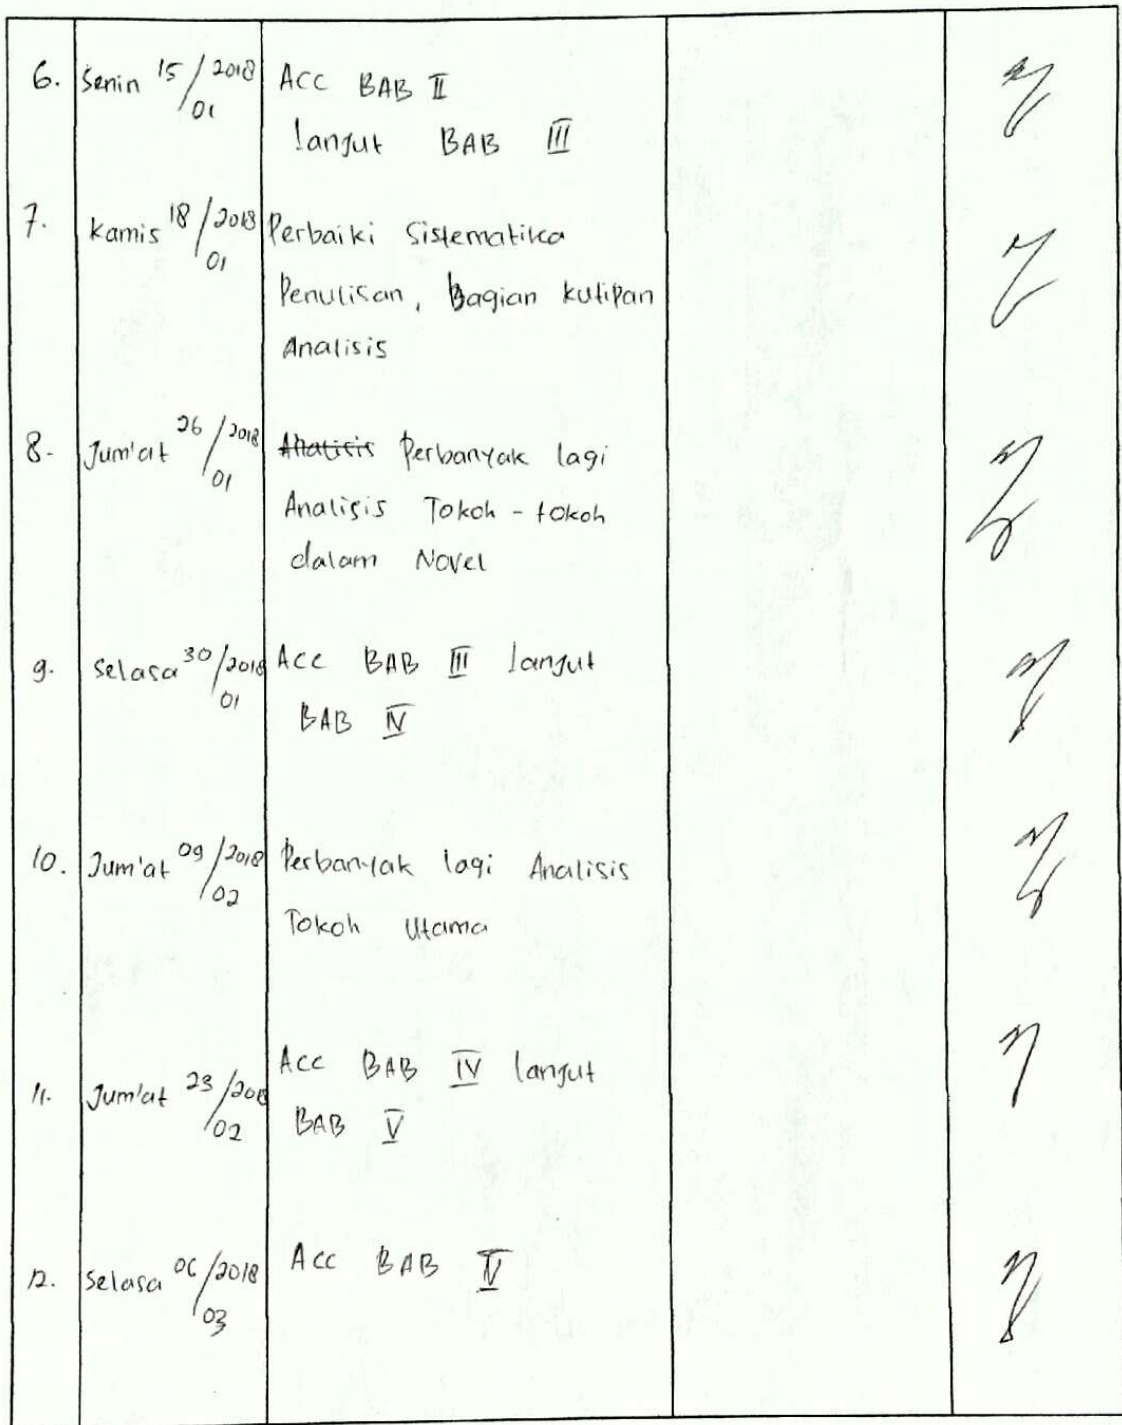 6. Senin 15/01/2018 Acc BAB II
lanjut BAB III
7. Kamis 18/01/2018 Perbaiki Sistematika
Penulisan, Bagian kutipan
Analisis
8. Jum'at 26/01/2018 Analisis Perbanyak lagi
Analisis Tokoh - tokoh
dalam Novel
9. Selasa 30/01/2018 Acc BAB III lanjut
BAB IV
10. Jum'at 09/02/2018 Perbanyak lagi Analisis
Tokoh Utama
11. Jum'at 23/02/2018 Acc BAB IV lanjut
BAB V
12. Selasa 06/03/2018 Acc BAB V